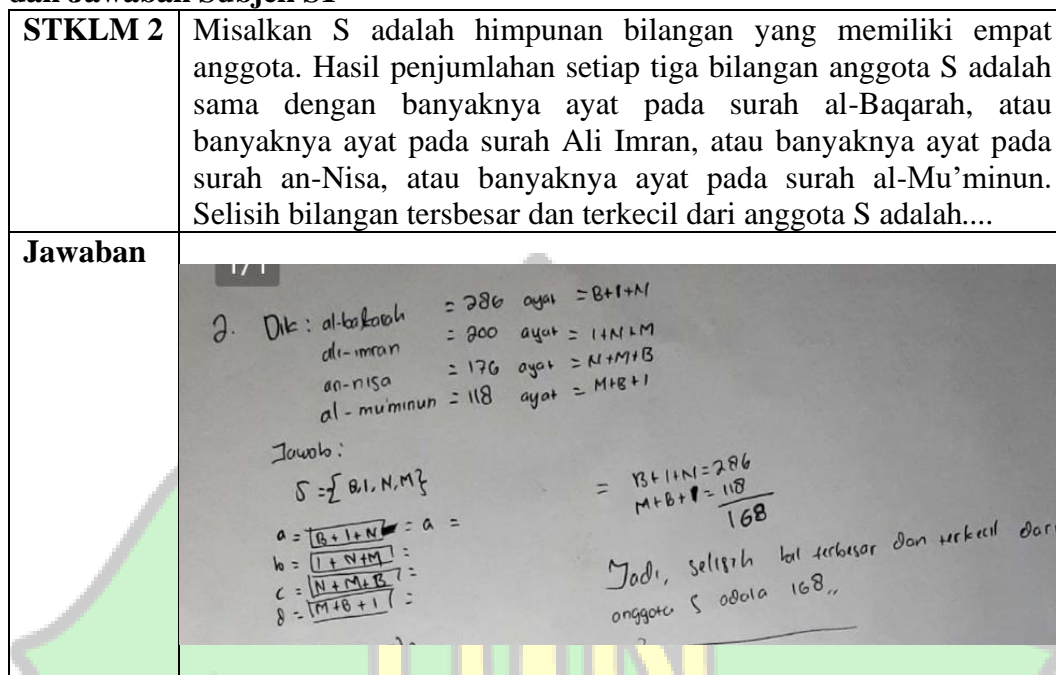 dan Jawaban Subjek S1
STKLM 2
Misalkan S adalah himpunan bilangan yang memiliki empat
anggota. Hasil penjumlahan setiap tiga bilangan anggota S adalah
sama dengan banyaknya ayat pada surah al-Baqarah, atau
banyaknya ayat pada surah Ali Imran, atau banyaknya ayat pada
surah an-Nisa, atau banyaknya ayat pada surah al-Mu’minun.
Selisih bilangan tersbesar dan terkecil dari anggota S adalah....
Jawaban
1/1
2. Dik : al-bakorah = 286 ayat = B+I+N
ali-imran = 200 ayat = I+N+M
an-nisa = 176 ayat = N+M+B
al-mu'minun = 118 ayat = M+B+I
Jawab :
S = { B, I, N, M }
a = B + I + N = a =
b = I + N+M =
c = N + M + B =
d = M+B + I =
= B+I+N = 286
M+B+I = 118
168
Jadi, selisih bil terbesar dan terkecil dari
anggota S adala 168,,